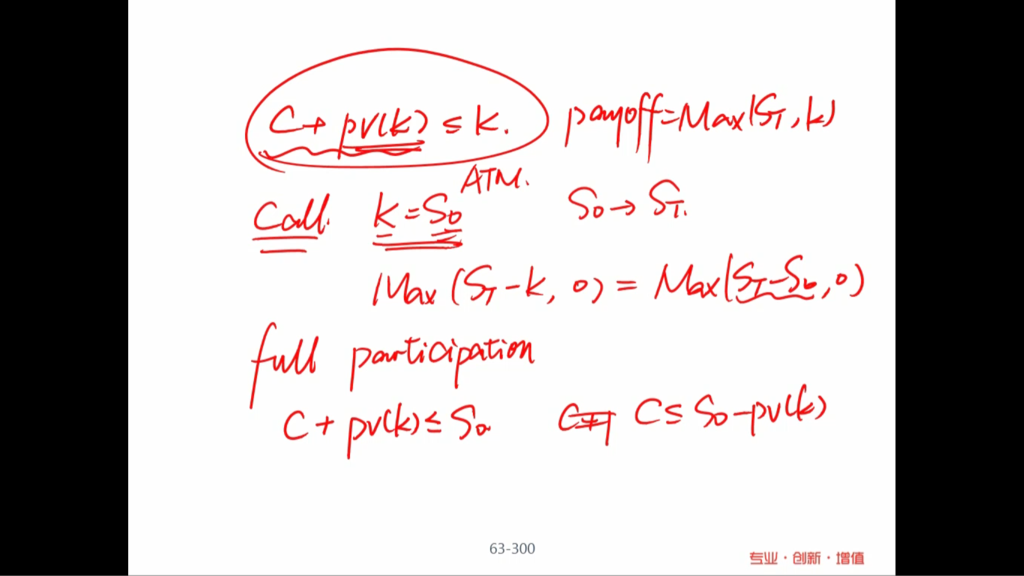 C + pv(k) ≤ k. payoff = Max(S_T, k)
ATM.
Call. k = S₀ S₀ → S_T.
Max (S_T - k, 0) = Max(S_T - S₀, 0)
full participation
C + pv(k) ≤ S₀. C ≤ S₀ - pv(k)
63-300
专业·创新·增值